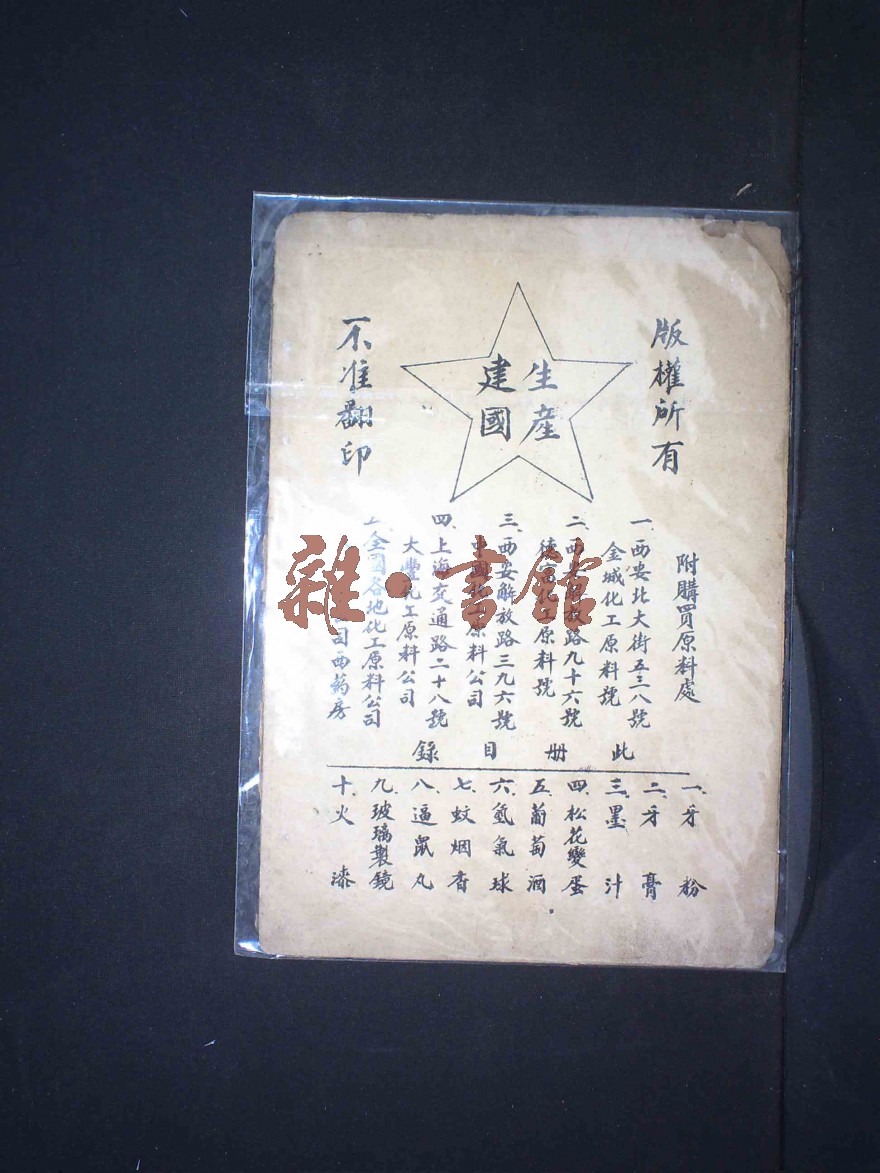 版權所有
生產
建國
不准翻印
附購買原料處
一、西安北大街五三八號
金城化工原料號
二、西安解放路九十六號
化工原料號
三、西安解放路三九六號
中國化工原料公司
四、上海交通路二十八號
大豐化工原料公司
全國各地化工原料公司
司西葯房
此册目錄
一、牙粉
二、牙膏
三、墨汁
四、松花變蛋
五、葡萄酒
六、氢氣球
七、蚊烟香
八、逼鼠丸
九、玻璃製鏡
十、火漆
雜·書館